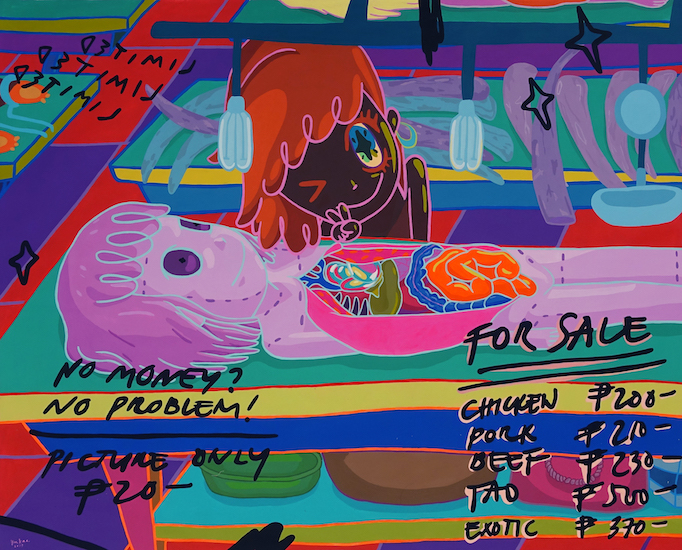 LIMITED
LIMITED
LIMITED
NO MONEY?
NO PROBLEM!
PICTURE ONLY
₱20-
FOR SALE
CHICKEN ₱200-
PORK ₱210-
BEEF ₱230-
TAO ₱500-
EXOTIC ₱370-